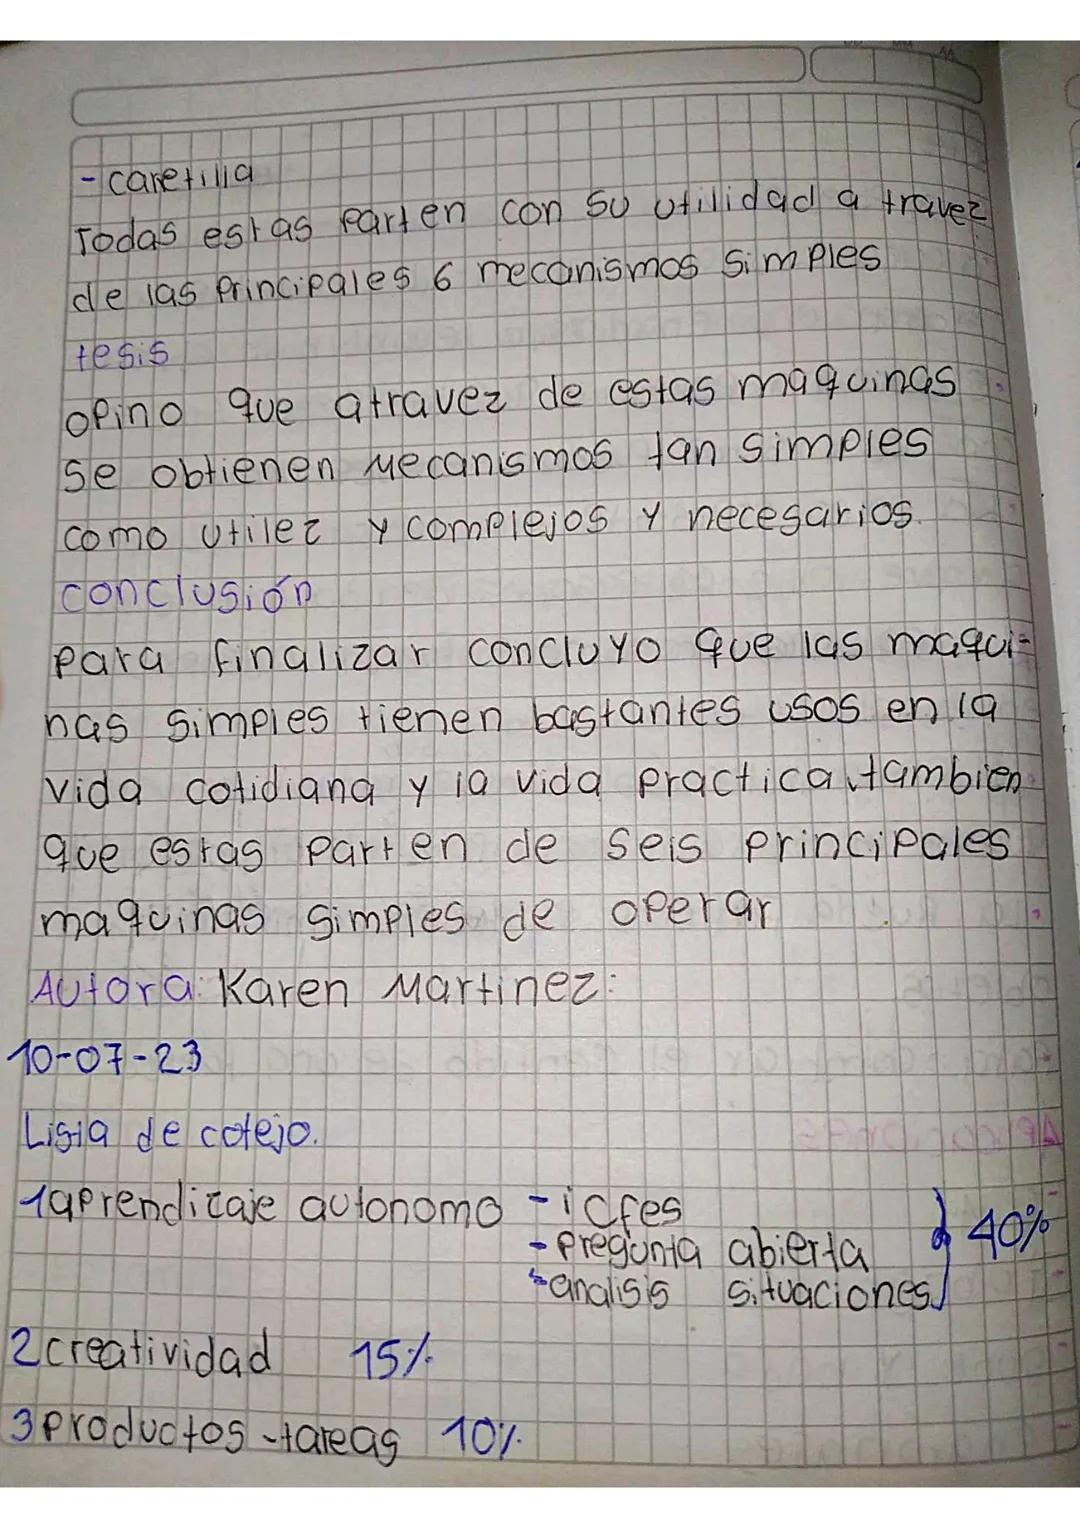 - caretilla
Todas estas parten con su utilidad a travez
de las principales 6 mecanismos simples
tesis
opino que atravez de estas maquinas
se obtienen mecanismos tan simples
como utilez y complejos y necesarios.
conclusión
para finalizar concluyo que las maqui-
nas simples tienen bastantes usos en la
vida cotidiana y la vida practica, tambien
que estas parten de seis principales
maquinas simples de operar
Autora: Karen Martinez:
10-07-23
Lista de cotejo.
1 aprendizaje autonomo - icfes
- pregunta abierta 40%
- analisis situaciones
2 creatividad 15%
3 productos - tareas 10%